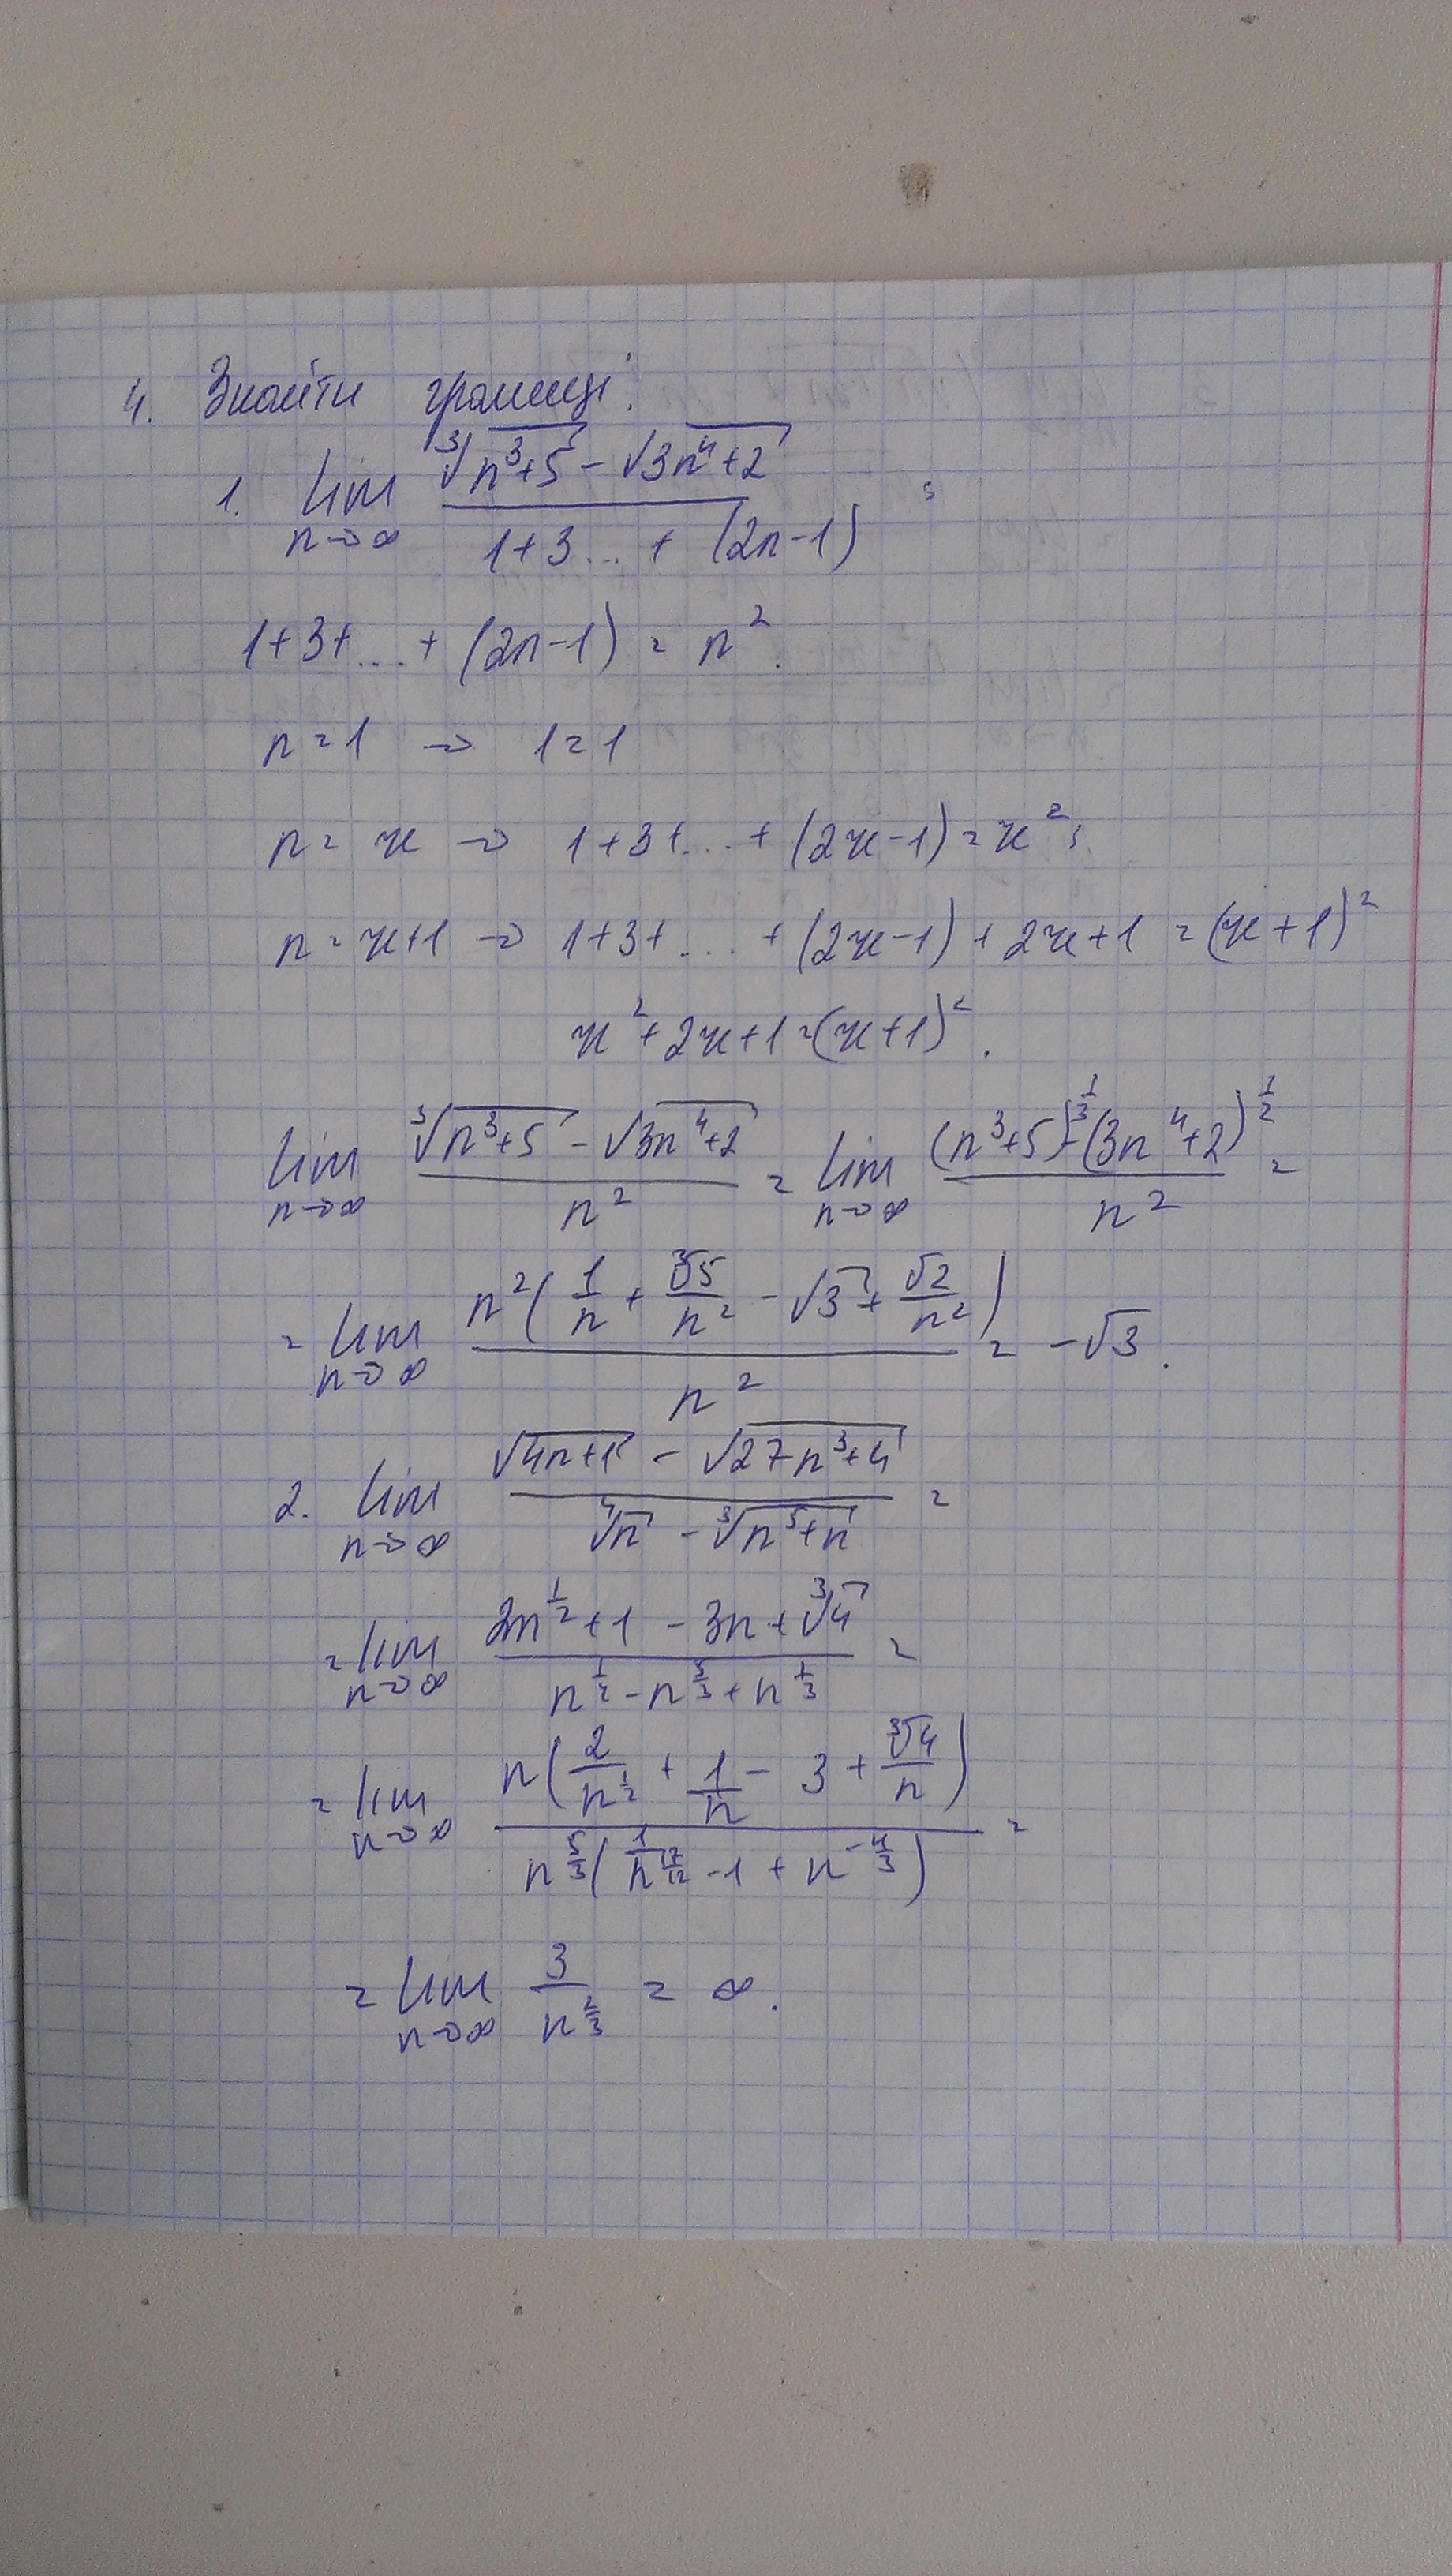 4. Знайти границі:
1. lim n→∞ (∛(n³+5) - √(3n⁴+2)) / (1+3...+(2n-1)) ;
1+3+...+(2n-1) = n².
n=1 → 1=1
n=к → 1+3+...+(2к-1)=к²;
n=к+1 → 1+3+...+(2к-1)+2к+1=(к+1)²
к²+2к+1=(к+1)².
lim n→∞ (∛(n³+5) - √(3n⁴+2)) / n² = lim n→∞ ((n³+5)^(1/3) - (3n⁴+2)^(1/2)) / n² =
= lim n→∞ n²(1/n + ∛5/n² - √3 + √2/n²) / n² = -√3.
2. lim n→∞ (√(4n+1) - √(27n³+4)) / (∜n - ∛(n⁵+n)) =
= lim n→∞ (2n^(1/2) + 1 - 3n + ∛4) / (n^(1/4) - n^(5/3) + n^(1/3)) =
= lim n→∞ n(2/n^(1/2) + 1/n - 3 + ∛4/n) / n^(5/3)(1/n^(17/12) - 1 + n^(-4/3)) =
= lim n→∞ 3/n^(2/3) = ∞.